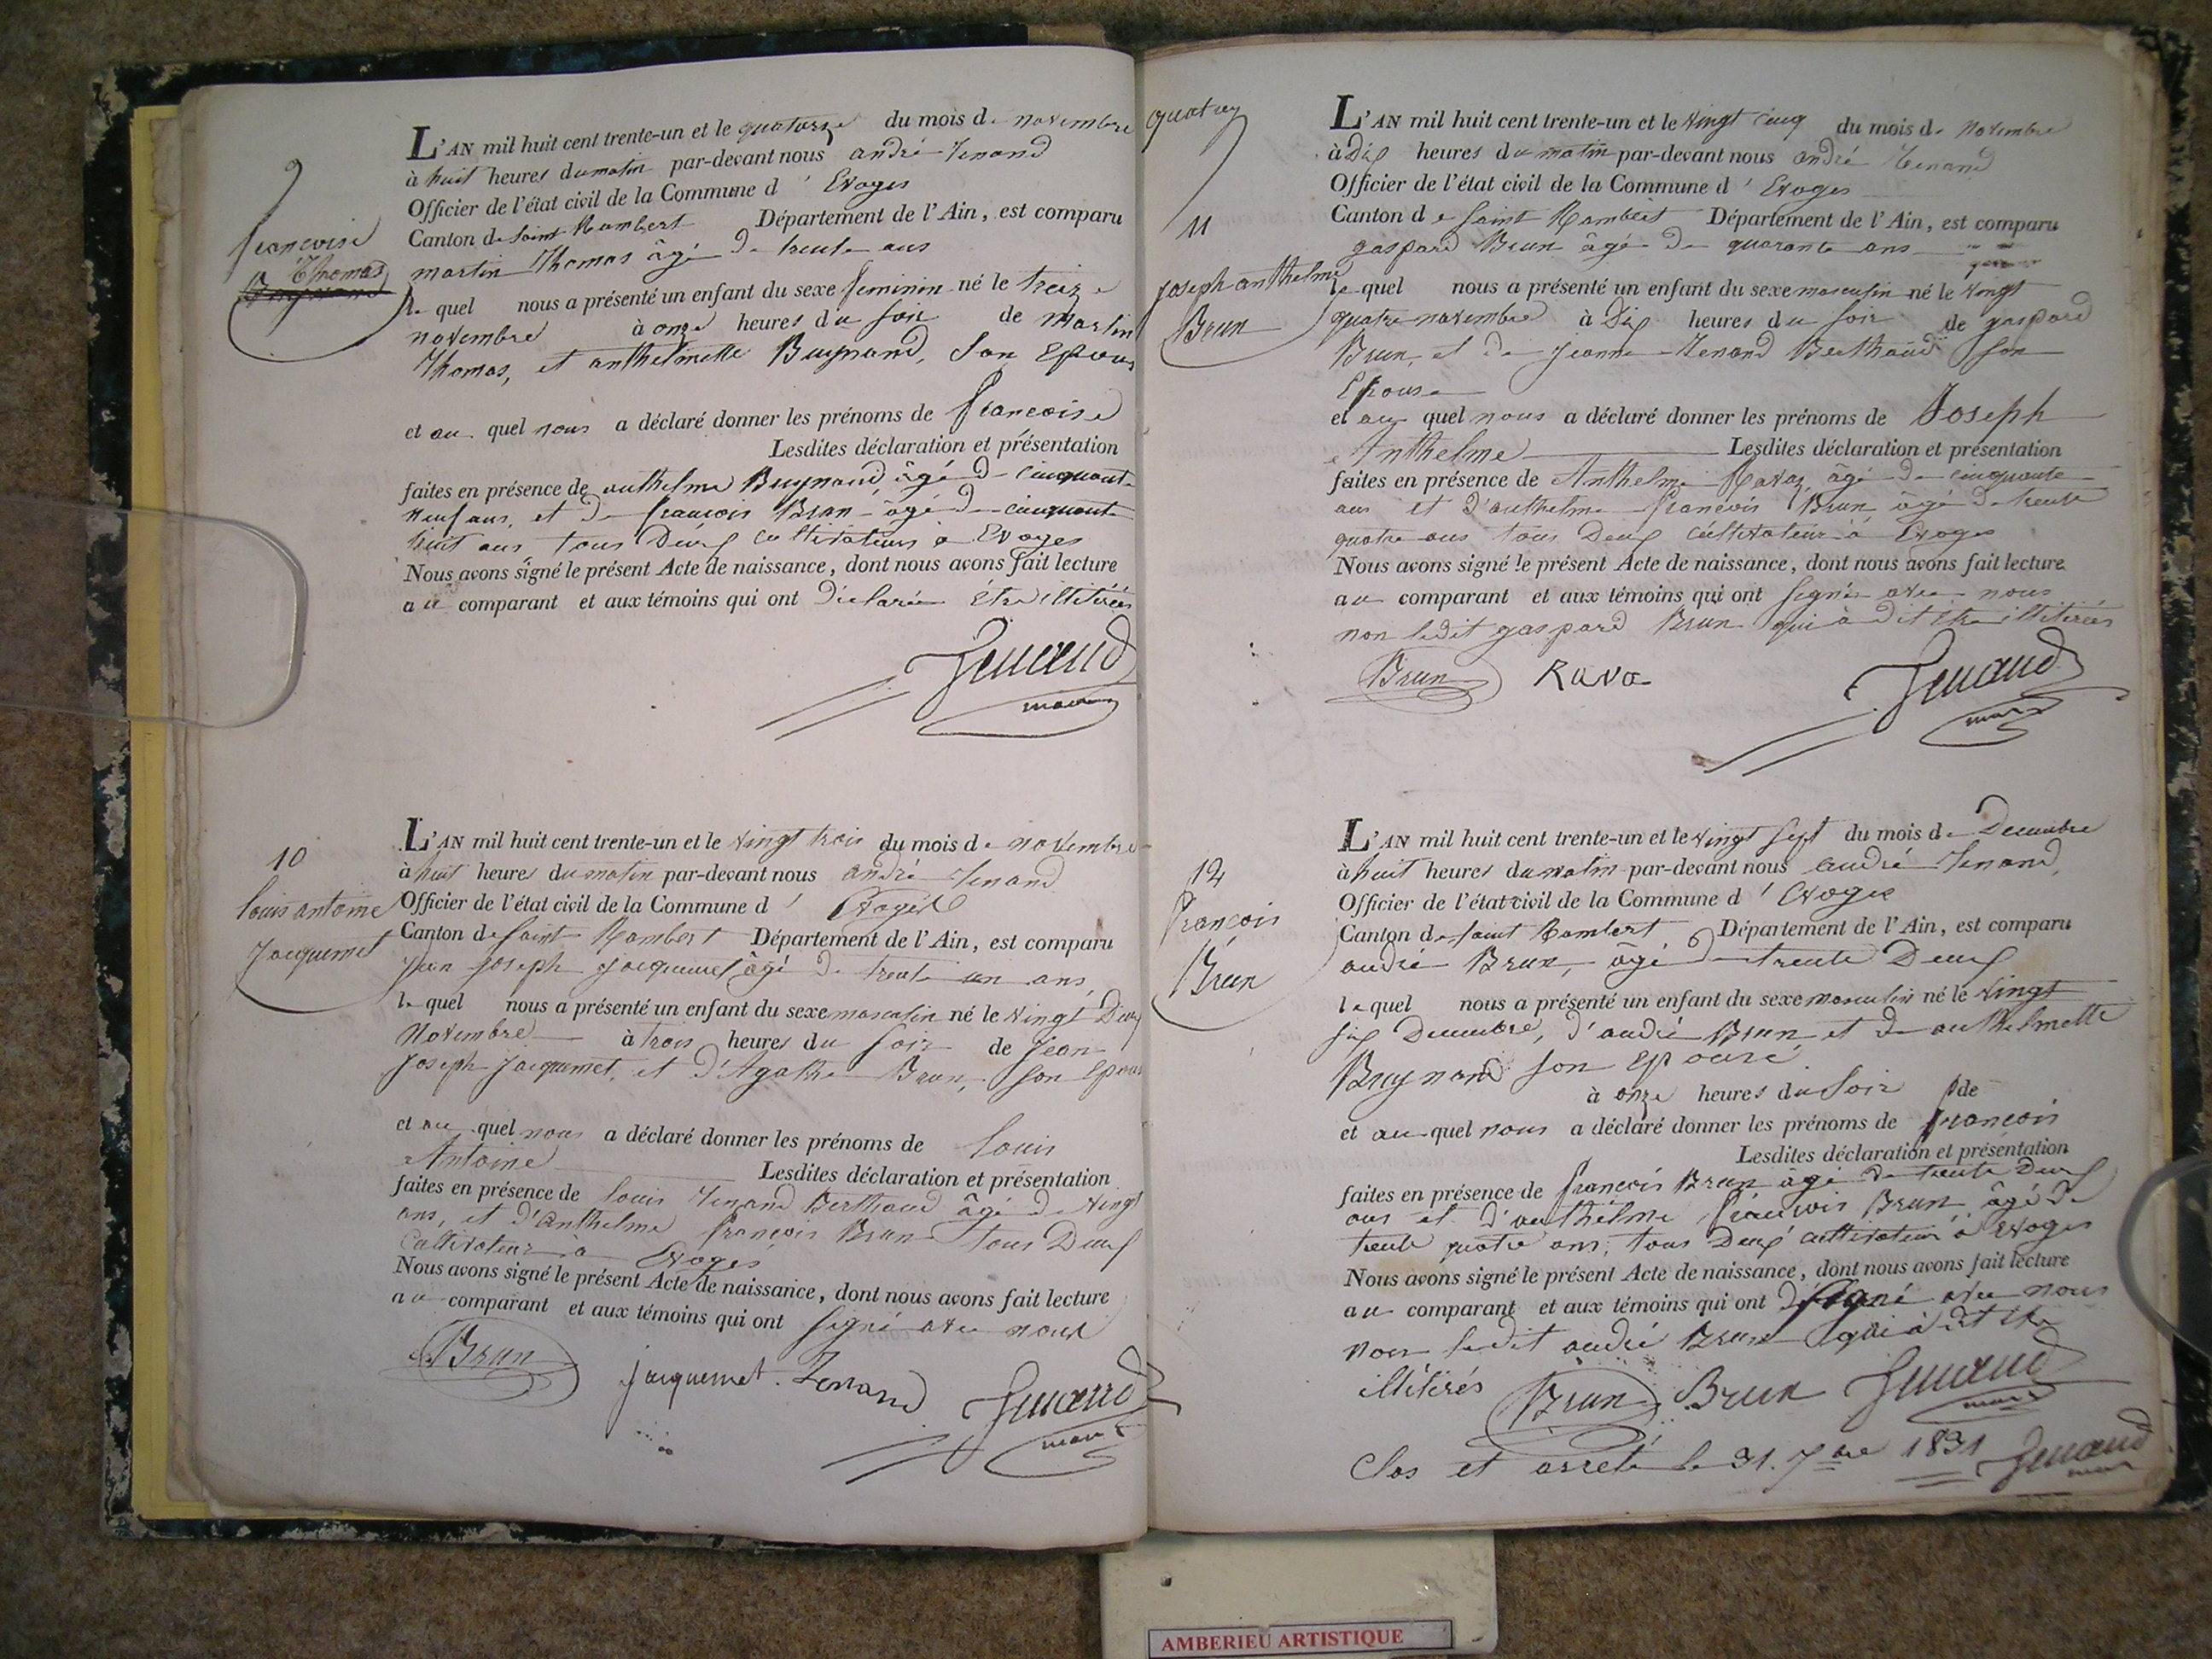 9
françoise
Thomas
L'AN mil huit cent trente-un et le quatorze du mois de novembre
à huit heures du matin par-devant nous andré Tenand
Officier de l'état civil de la Commune d'Evoges
Canton de Saint Rambert Département de l'Ain, est comparu
martin Thomas âgé de trente ans
le quel nous a présenté un enfant du sexe feminin né le treize
novembre à onze heures du soir de Martin
Thomas, et anthelmette Buynand, son Epouse
et au quel nous a déclaré donner les prénoms de françoise
Lesdites déclaration et présentation
faites en présence de anthelme Buynand âgé de cinquante
neuf ans, et de françois Brun âgé de cinquante
huit ans tous Deux cultivateurs à Evoges
Nous avons signé le présent Acte de naissance, dont nous avons fait lecture
au comparant et aux témoins qui ont déclaré être illitérés
Tenand
maire
10
louis antoine
Jacquemet
L'AN mil huit cent trente-un et le vingt trois du mois de novembre
à huit heures du matin par-devant nous andré Tenand
Officier de l'état civil de la Commune d'Evoges
Canton de Saint Rambert Département de l'Ain, est comparu
jean joseph jacquemet âgé de trente un ans
le quel nous a présenté un enfant du sexe masculin né le vingt Deux
Novembre à trois heures du soir de Jean
Joseph Jacquemet, et d'Agathe Brun, son Epouse
et au quel nous a déclaré donner les prénoms de louis
Antoine Lesdites déclaration et présentation
faites en présence de louis Tenand Berthaud âgé de vingt
ans, et d'Anthelme françois Brun tous Deux
Cultivateur à Evoges
Nous avons signé le présent Acte de naissance, dont nous avons fait lecture
au comparant et aux témoins qui ont signé avec nous
Brun jacquemet Tenand Tenand
maire
11
joseph anthelme
Brun
L'AN mil huit cent trente-un et le vingt cinq du mois de Novembre
à Dix heures du matin par-devant nous andré Tenand
Officier de l'état civil de la Commune d'Evoges
Canton de Saint Rambert Département de l'Ain, est comparu
gaspard Brun âgé de quarante ans
le quel nous a présenté un enfant du sexe masculin né le vingt
quatre novembre à Dix heures du soir de gaspard
Brun, et de Jeanne Tenand Berthaud son
Epouse
et au quel nous a déclaré donner les prénoms de Joseph
Anthelme Lesdites déclaration et présentation
faites en présence de Anthelme Ravaz, âgé de cinquante
ans et d'anthelme françois Brun âgé de trente
quatre ans tous Deux cultivateur à Evoges
Nous avons signé le présent Acte de naissance, dont nous avons fait lecture
au comparant et aux témoins qui ont signés avec nous
non ledit gaspard Brun qui à dit être illitérés
Brun Rava Tenand
maire
12
françois
Brun
L'AN mil huit cent trente-un et le vingt sept du mois de Decembre
à huit heures du matin par-devant nous andré Tenand,
Officier de l'état civil de la Commune d'Evoges
Canton de Saint Rambert Département de l'Ain, est comparu
andré Brun, âgé de trente Deux
le quel nous a présenté un enfant du sexe masculin né le vingt
six Decembre, d'andré Brun et de anthelmette
Buynand son Epouse
à onze heures du soir de
et au quel nous a déclaré donner les prénoms de françois
Lesdites déclaration et présentation
faites en présence de françois Brun âgé de trente Deux
ans et d'anthelme françois Brun âgé de
trente quatre ans, tous Deux cultivateur à Evoges
Nous avons signé le présent Acte de naissance, dont nous avons fait lecture
au comparant et aux témoins qui ont signé avec nous
non ledit andré Brun qui à dit être
illitérés Brun Brun Tenand
maire
Clos et arreté le 31. 1831 Tenand
AMBERIEU ARTISTIQUE